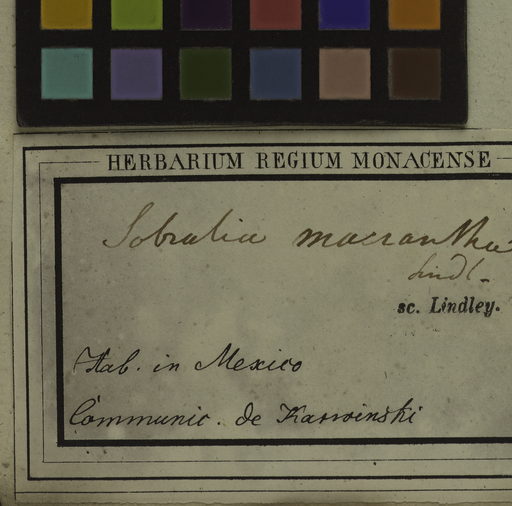 HERBARIUM REGIUM MONACENSE
Sobralia macrantha
Lindl.
sc. Lindley.
Hab. in Mexico
Communic. de Karwinski